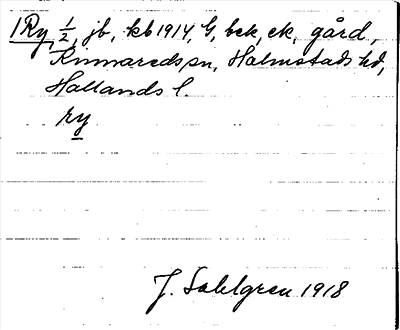 1 Ry, 1/2, jb, kb 1914, G, bek, ek, gård,
Knnareds sn, Halmstads hd,
Hallands l.
ry
J. Sahlgren 1918